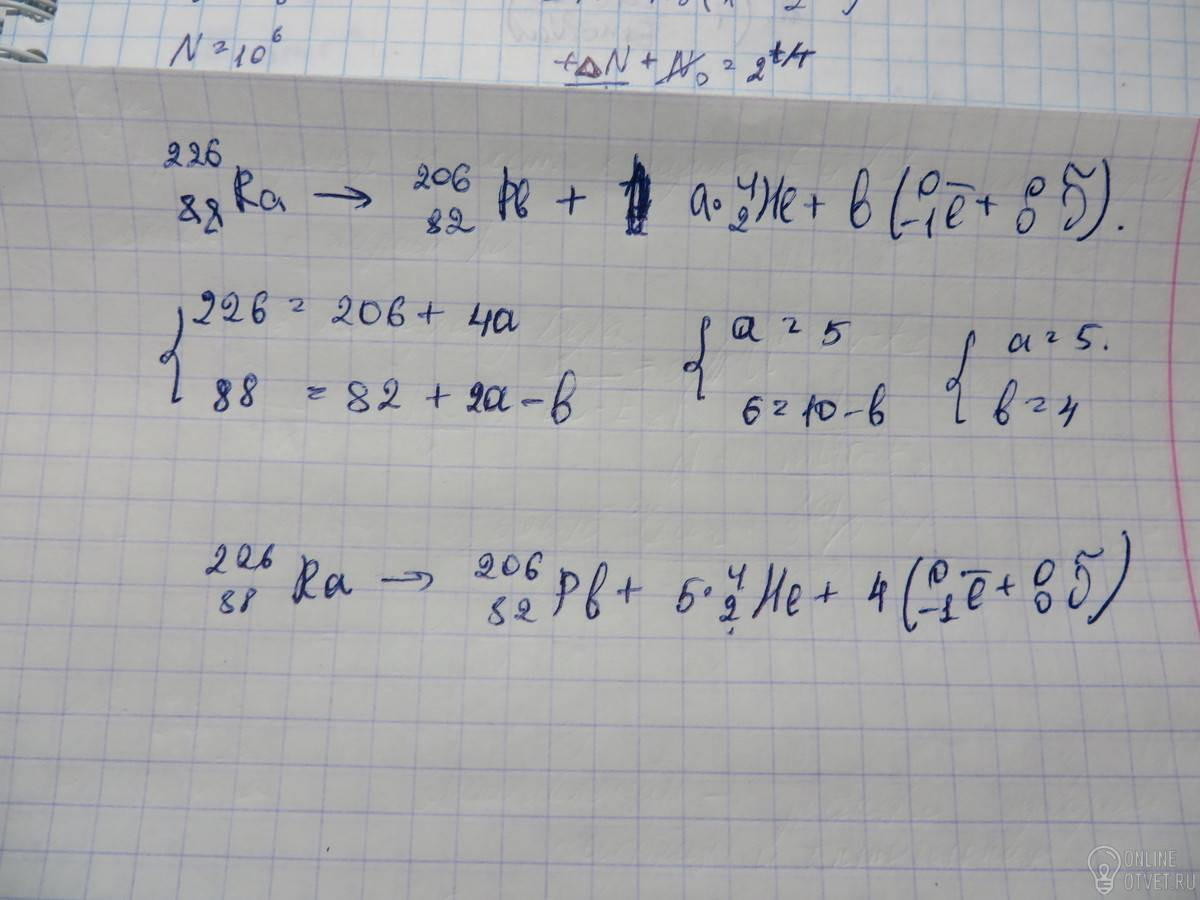 N = 10⁶
+ΔN + N₀ = 2
²²⁶₈₈Ra → ²⁰⁶₈₂Pb + a·⁴₂He + b(⁰₋₁e̅ + ⁰₀ν̃).
{ 226 = 206 + 4a { a = 5 { a = 5.
88 = 82 + 2a - b 6 = 10 - b b = 4
²²⁶₈₈Ra → ²⁰⁶₈₂Pb + 5·⁴₂He + 4(⁰₋₁e̅ + ⁰₀ν̃)
ONLINE
OTVET.RU